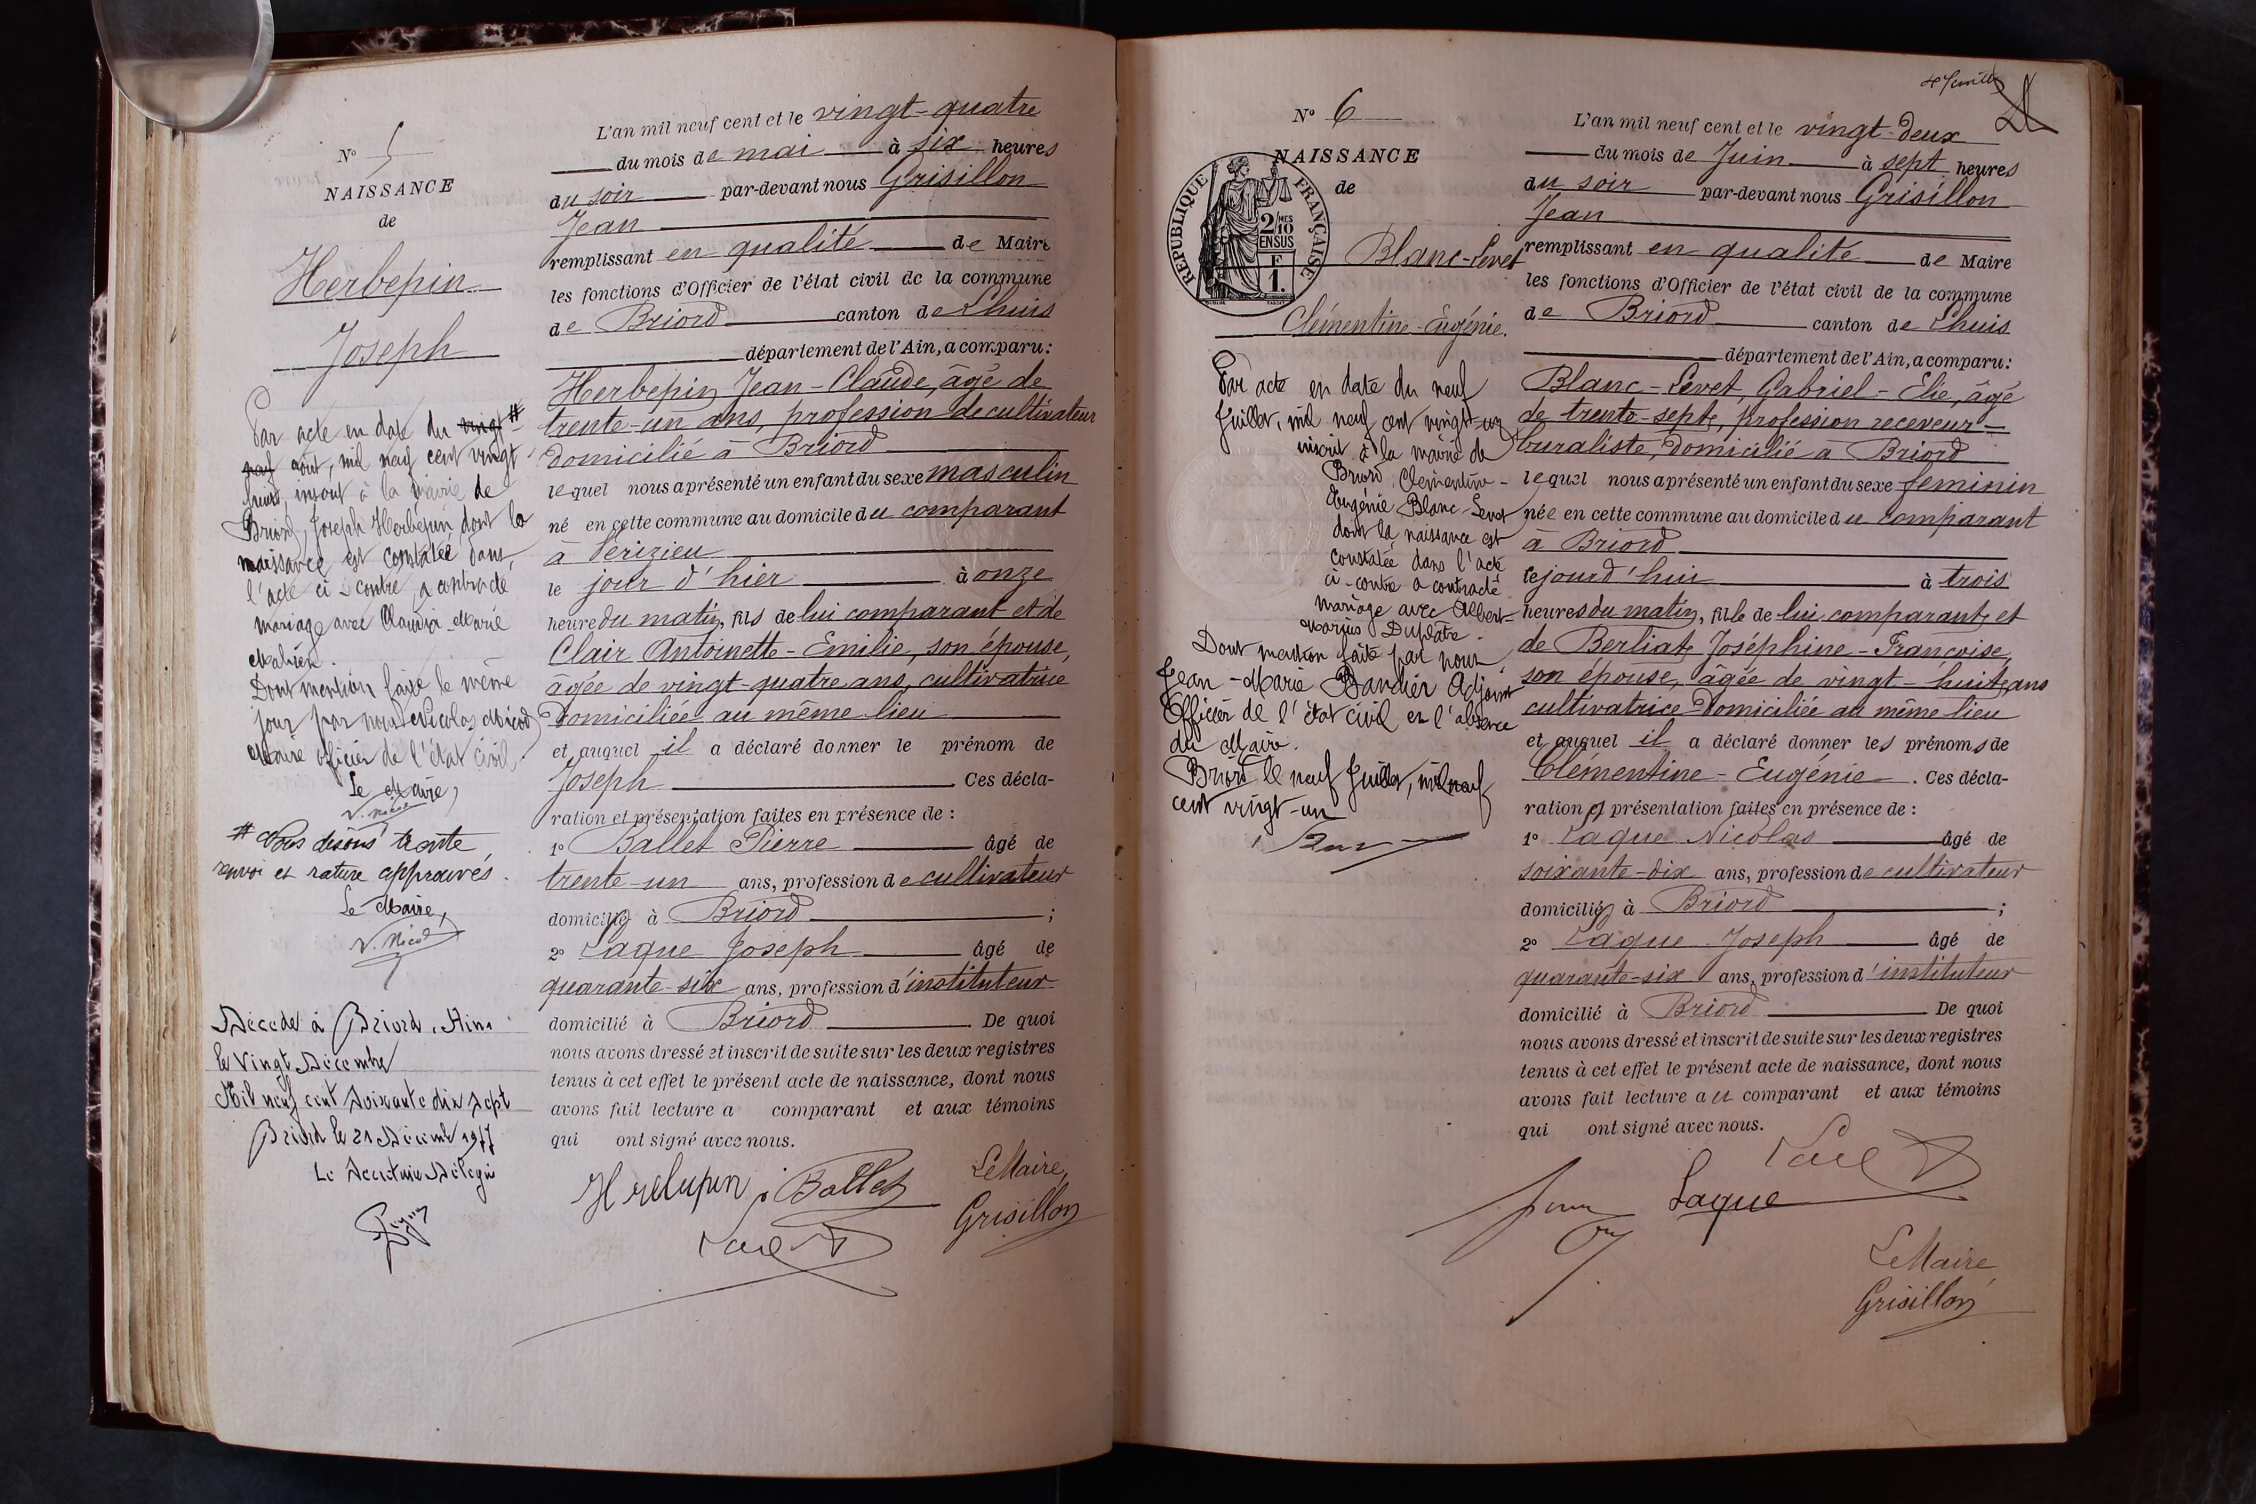 N° 5
NAISSANCE
de
Herbepin
Joseph
Par acte en date du vingt #
neuf août, mil neuf cent vingt
huit, inscrit à la mairie de
Briord, Joseph Herbepin dont la
naissance est constatée dans
l'acte ci-contre, a contracté
mariage avec Claudia-Marie
Dont mention faite le même
jour par nous Nicolas Nicod
Maire officier de l'état civil.
Le Maire,
N. Nicod
# Nous disons trente
renvoi et rature approuvés.
Le Maire,
N. Nicod
Décédé à Briord, Ain
le Vingt Décembre
Mil neuf cent soixante dix sept
Briord le 21 Décembre 1977
Le Secrétaire Délégué
L'an mil neuf cent et le vingt-quatre
du mois de mai à six heures
du soir par-devant nous Grisillon
Jean
remplissant en qualité de Maire
les fonctions d'Officier de l'état civil de la commune
de Briord canton de Lhuis
département de l'Ain, a comparu:
Herbepin Jean-Claude, âgé de
trente-un ans, profession de cultivateur
domicilié à Briord
lequel nous a présenté un enfant du sexe masculin
né en cette commune au domicile du comparant
à Vérizieu
le jour d'hier à onze
heure du matin, fils de lui comparant et de
Clair Antoinette-Emilie, son épouse,
âgée de vingt-quatre ans, cultivatrice
domiciliée au même lieu
et auquel il a déclaré donner le prénom de
Joseph Ces décla-
ration et présentation faites en présence de :
1° Ballet Pierre âgé de
trente-un ans, profession de cultivateur
domicilié à Briord ;
2° Laque Joseph âgé de
quarante-six ans, profession d'instituteur
domicilié à Briord De quoi
nous avons dressé et inscrit de suite sur les deux registres
tenus à cet effet le présent acte de naissance, dont nous
avons fait lecture a comparant et aux témoins
qui ont signé avec nous.
Ballet
Le Maire,
Grisillon
4e feuillet
N° 6
NAISSANCE
de
REPUBLIQUE FRANÇAISE
2/10 MES
EN SUS
F
1.
Blanc-Levet
Clémentine-Eugénie.
Par acte en date du neuf
Juillet, mil neuf cent vingt-un
inscrit à la mairie de
Briord, Clémentine-
Eugénie Blanc-Levet
dont la naissance est
constatée dans l'acte
ci-contre a contracté
mariage avec Albert-
Marius
Dont mention faite par nous
Jean-Marie Adjoint
Officier de l'état civil en l'absence
du Maire.
Briord le neuf Juillet, mil neuf
cent vingt-un
L'an mil neuf cent et le vingt-deux
du mois de Juin à sept heures
du soir par-devant nous Grisillon
Jean
remplissant en qualité de Maire
les fonctions d'Officier de l'état civil de la commune
de Briord canton de Lhuis
département de l'Ain, a comparu:
Blanc-Levet, Gabriel-Elie, âgé
de trente-sept, profession receveur-
buraliste, domicilié à Briord
lequel nous a présenté un enfant du sexe feminin
née en cette commune au domicile du comparant
à Briord
le jourd'hui à trois
heures du matin, fille de lui comparant, et
de Berliat, Joséphine-Françoise,
son épouse, âgée de vingt-huit, ans
cultivatrice domiciliée au même lieu
et auquel il a déclaré donner les prénoms de
Clémentine-Eugénie. Ces décla-
ration et présentation faites en présence de :
1° Laque Nicolas âgé de
soixante-dix ans, profession de cultivateur
domicilié à Briord ;
2° Laque Joseph âgé de
quarante-six ans, profession d'instituteur
domicilié à Briord De quoi
nous avons dressé et inscrit de suite sur les deux registres
tenus à cet effet le présent acte de naissance, dont nous
avons fait lecture au comparant et aux témoins
qui ont signé avec nous.
Laque
Le Maire
Grisillon